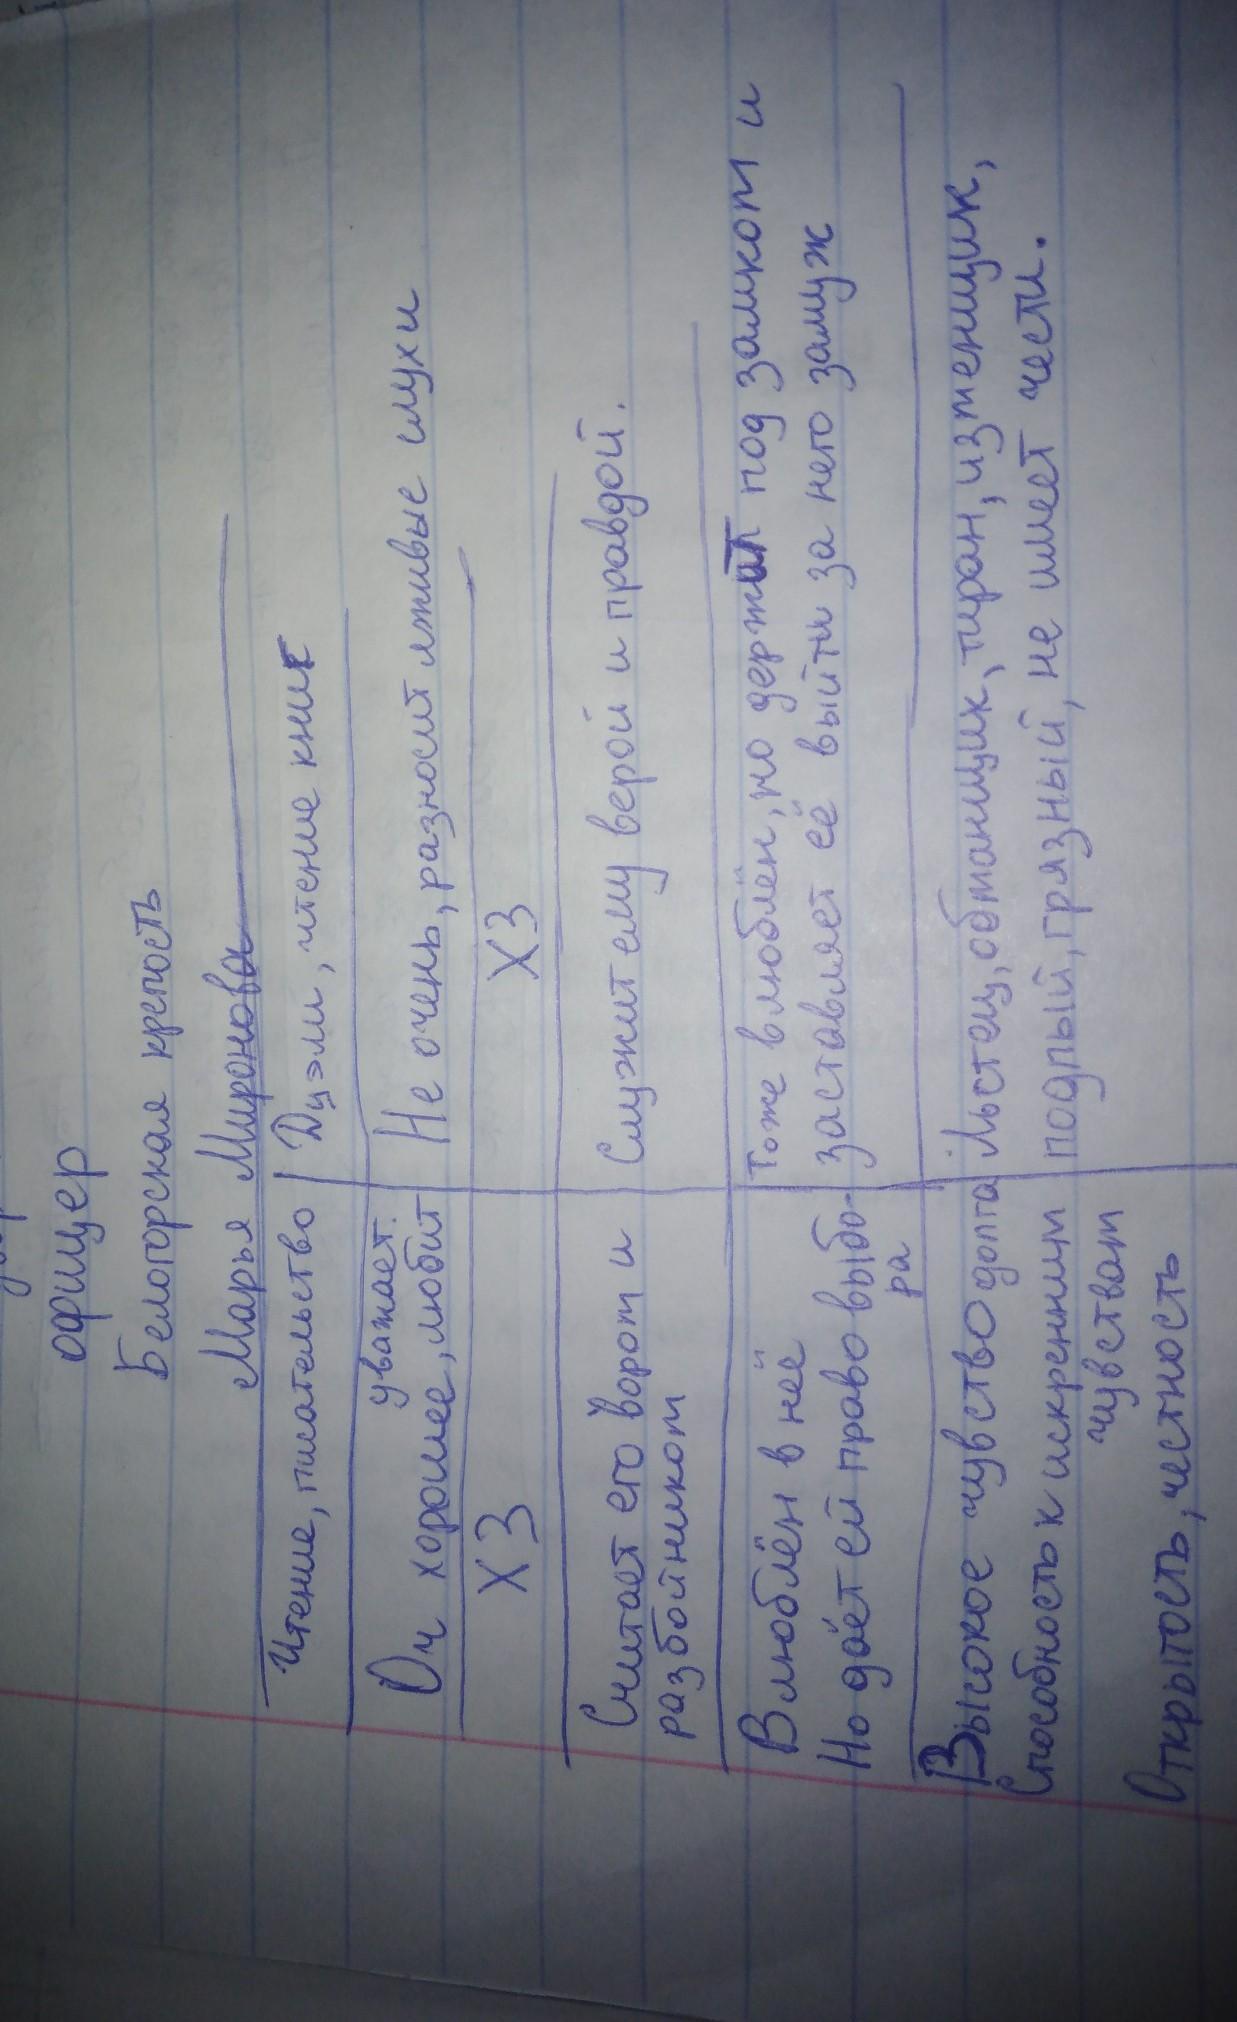 офицер
Белогорская крепость
Марья Миронова
Чтение, писательство
Дуэли, чтение книг
уважает.
Оч хорошее, любит
Не очень, разносит лживые слухи
ХЗ
ХЗ
Считает его вором и
разбойником
Служит ему верой и правдой.
Влюблён в неё
Но даёт ей право выбо-
ра
Тоже влюблён, но держит под замком и
заставляет её выйти за него замуж
Высокое чувство долга
Способность к искренним
чувствам
Открытость, честность
Льстец, обманщик, тиран, изменщик,
подлый, грязный, не имеет чести.